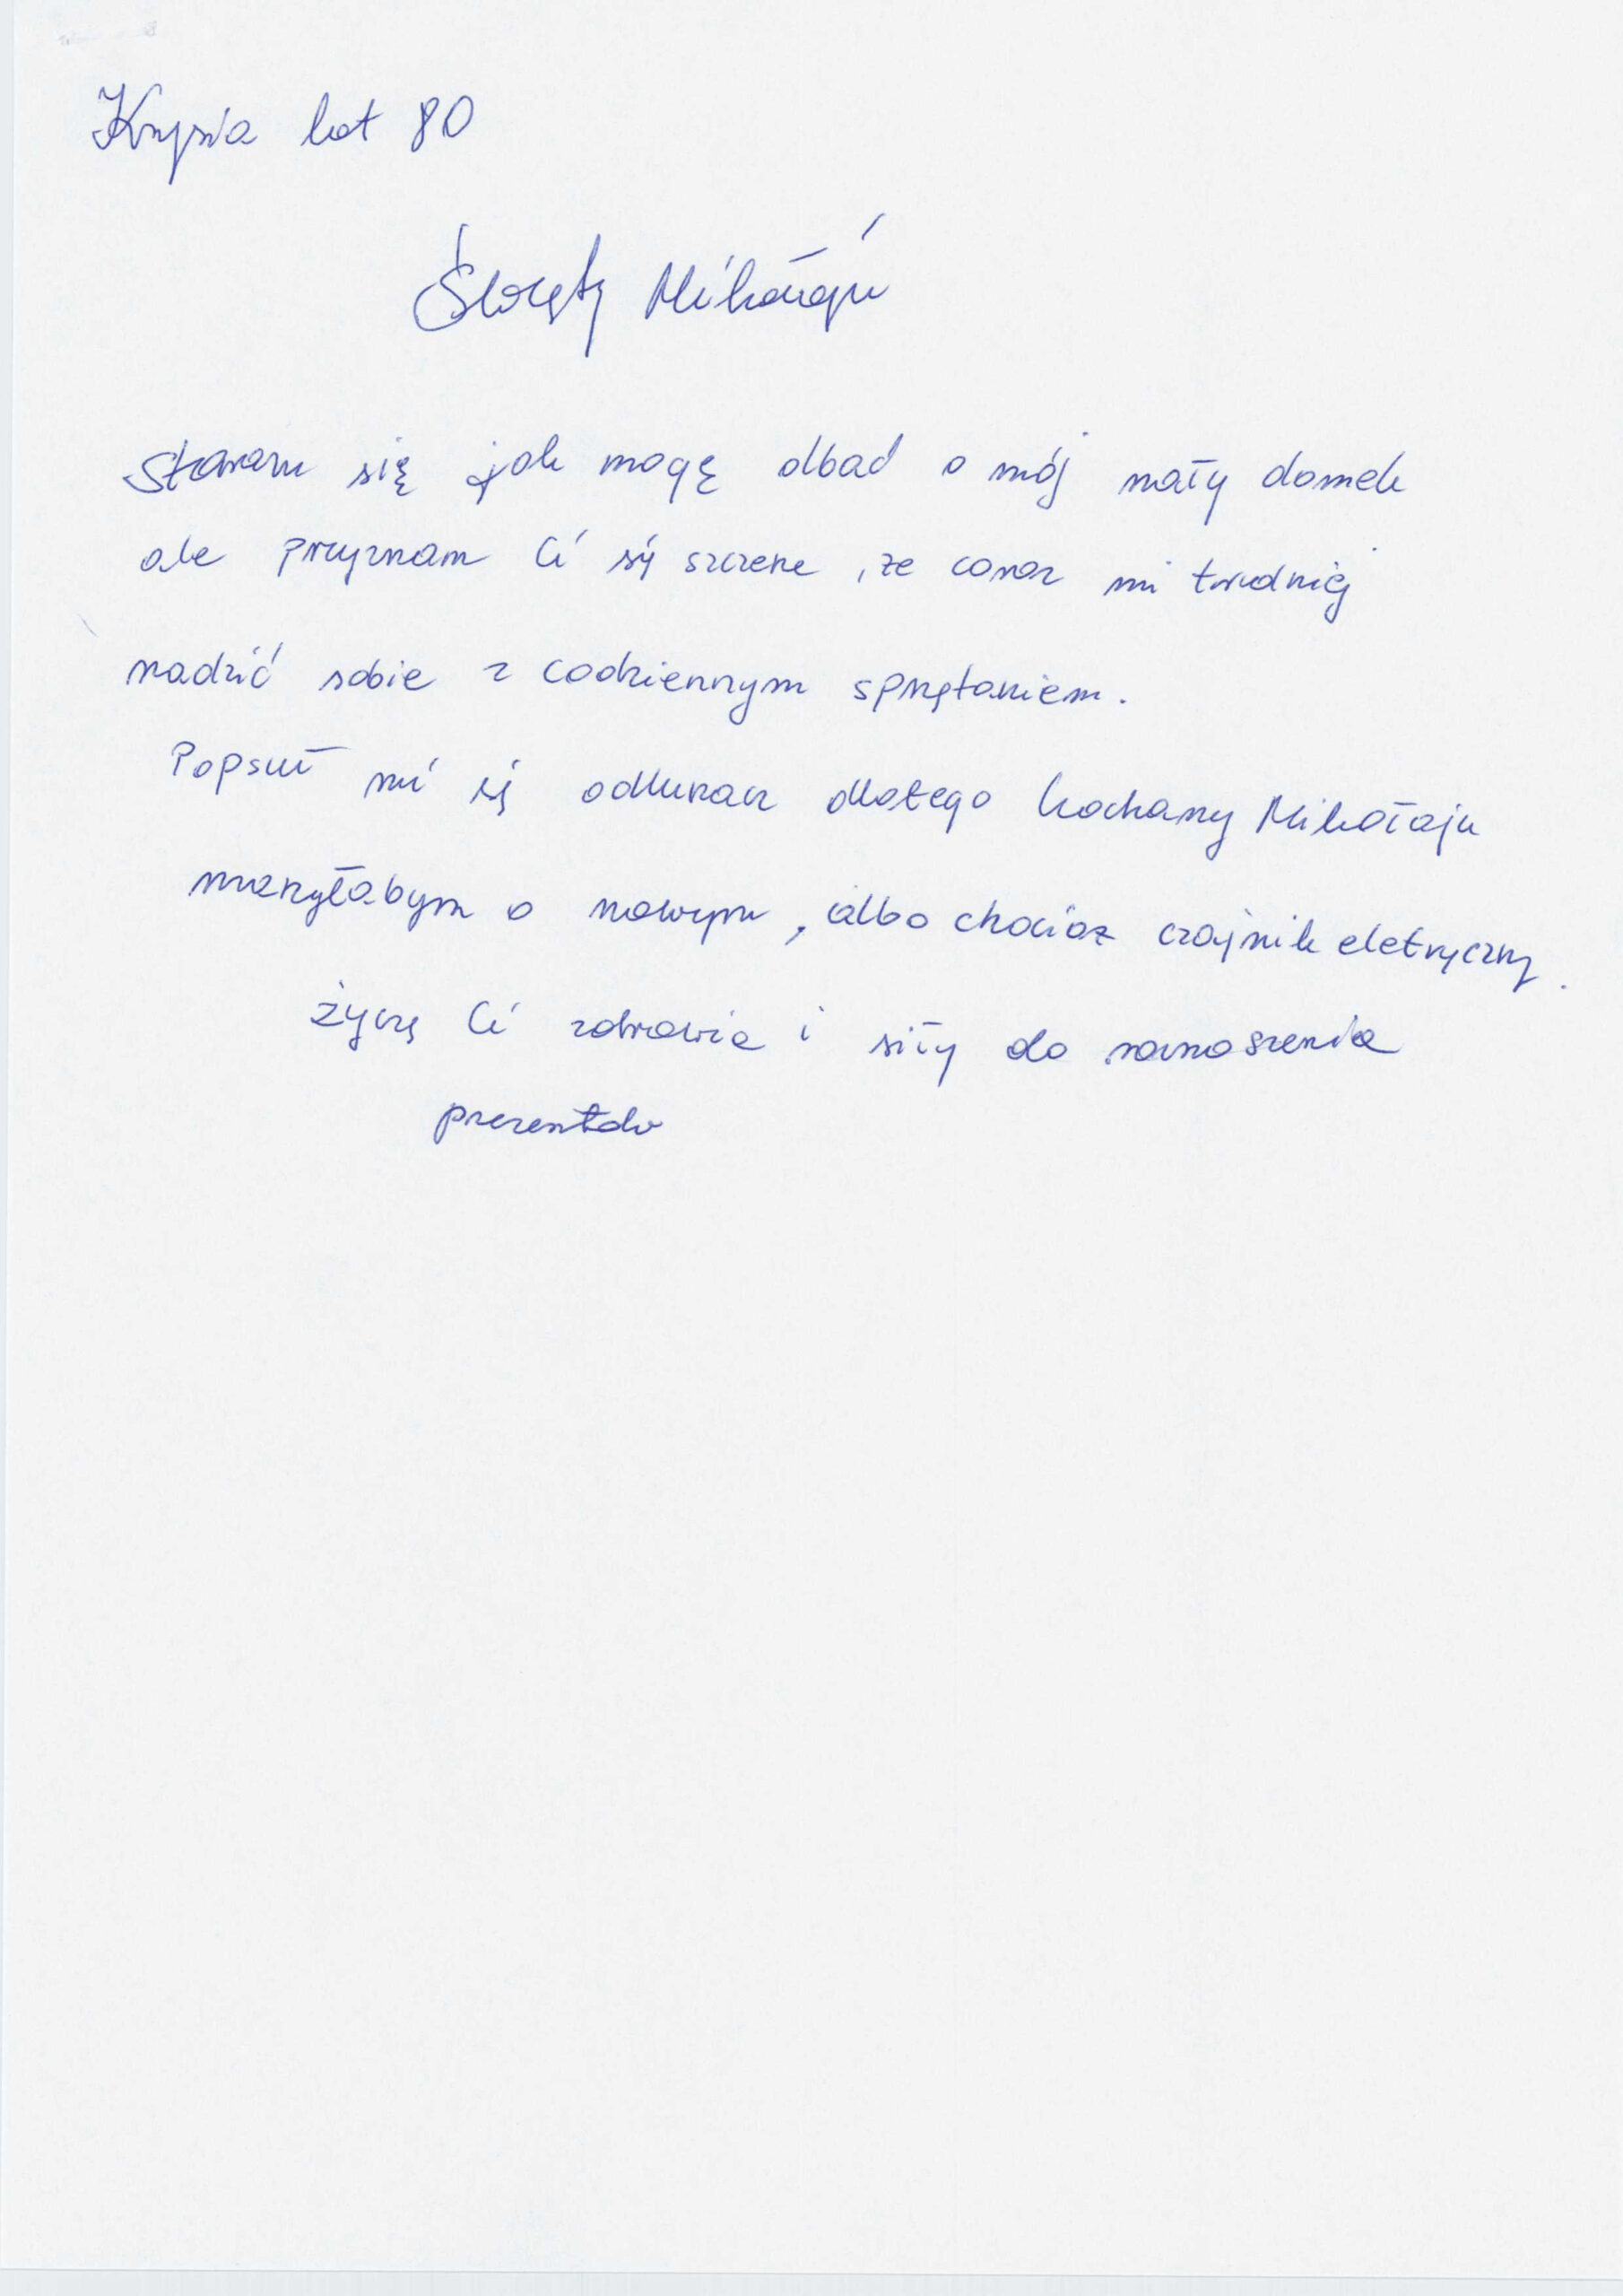 Krysia lat 80
Święty Mikołaju
Staram się jak mogę dbać o mój mały domek
ale przyznam Ci się szczerze, że coraz mi trudniej
radzić sobie z codziennym sprzętaniem.
Popsuł mi się odkurzacz dlatego kochany Mikołaju
marzyłabym o nowym, albo chociaż czajnik eletryczny.
życzę Ci zdrowia i siły do roznoszenia
prezentów